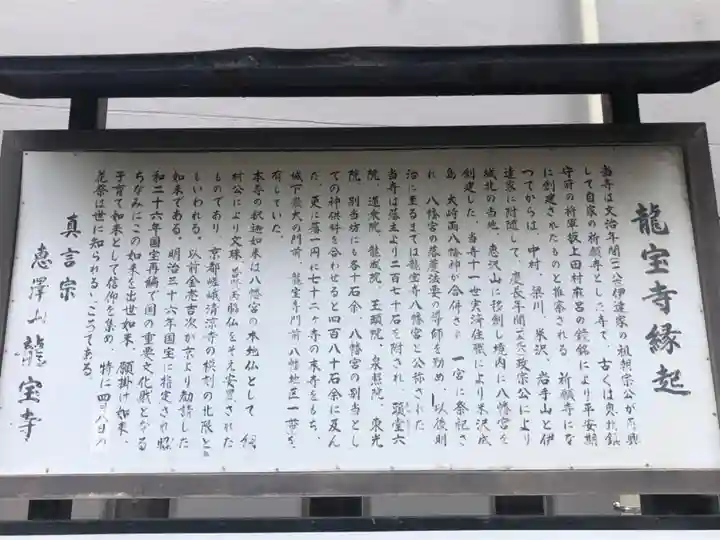 龍宝寺縁起
当寺は文治年間(一一八〇)伊達家の祖朝宗公が再興
して自家の祈願寺とした寺で、古くは奥州鎮
守府の将軍坂上田村麻呂の鐘銘により平安期
に創建されたものと推察される。祈願寺にな
つてからは、中村、梁川、米沢、岩手山と伊
達家に附随して、慶長年間政宗公により
城北の当地、恵沢山に移創し境内に八幡宮を
創建した。当寺十一世実済住職により米沢成
島、大崎両八幡神が合併され、一宮に祭祀さ
れ、八幡宮の落慶法要の導師を勤め、以後明
治に至るまでは龍宝寺八幡宮と公称された
当寺は藩主より二百七十石を附され、頭堂六
院、道泉院、龍成院、王頭院、泉照院、東光
院、別当坊にも各十石余、八幡宮の別当とし
ての神供料を合わせると四百八十石余に及ん
だ、更に藩一円に七十二ヶ寺の末寺をもち、
城下最大の門前、龍宝寺門前八幡地区一帯を
有していた。
本寺の釈迦如来は八幡宮の本地仏として 綱
村公により文珠、普賢両脇仏をそえ安置された
ものであり、京都嵯峨清凉寺の模刻の北限と
もいわれる。以前金売吉次が京より勧請した
如来である。明治三十六年国宝に指定され昭
和二十六年国宝再編で国の重要文化財となる
ちなみにこの如来を出世如来、願掛け如来、
子育て如来として信仰を集め、特に四月八日の
花祭は世に知られるところである。
真言宗
恵澤山龍宝寺